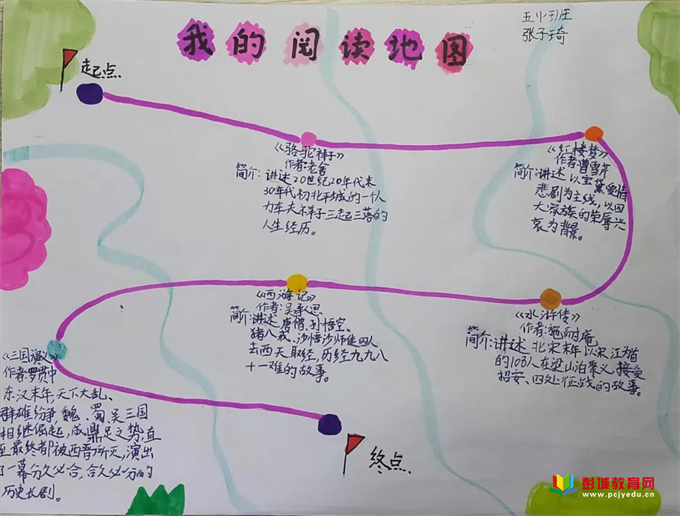 我的阅读地图
五（1）班
张子琦
起点
《骆驼祥子》
作者：老舍
简介：讲述20世纪20年代末
30年代初北平城的一个人
力车夫祥子三起三落的
人生经历。
《红楼梦》
作者：曹雪芹
简介：讲述以宝黛爱情
悲剧为主线，以四
大家族的荣辱兴
衰为背景。
《水浒传》
作者：施耐庵
简介：讲述北宋末年以宋江为首
的108人在梁山泊聚义，接受
招安、四处征战的故事。
《西游记》
作者：吴承恩
简介：讲述唐僧、孙悟空、
猪八戒、沙悟沙师徒四人
去西天取经，历经九九八
十一难的故事。
《三国演义》
作者：罗贯中
东汉末年，天下大乱、
群雄纷争，魏、蜀、吴三国
相继崛起，成鼎足之势，直
至最终都被西晋所灭，演出
了一幕分久必合，合久必分的
历史长剧。
终点
彭城教育网
www.pcjyedu.cn